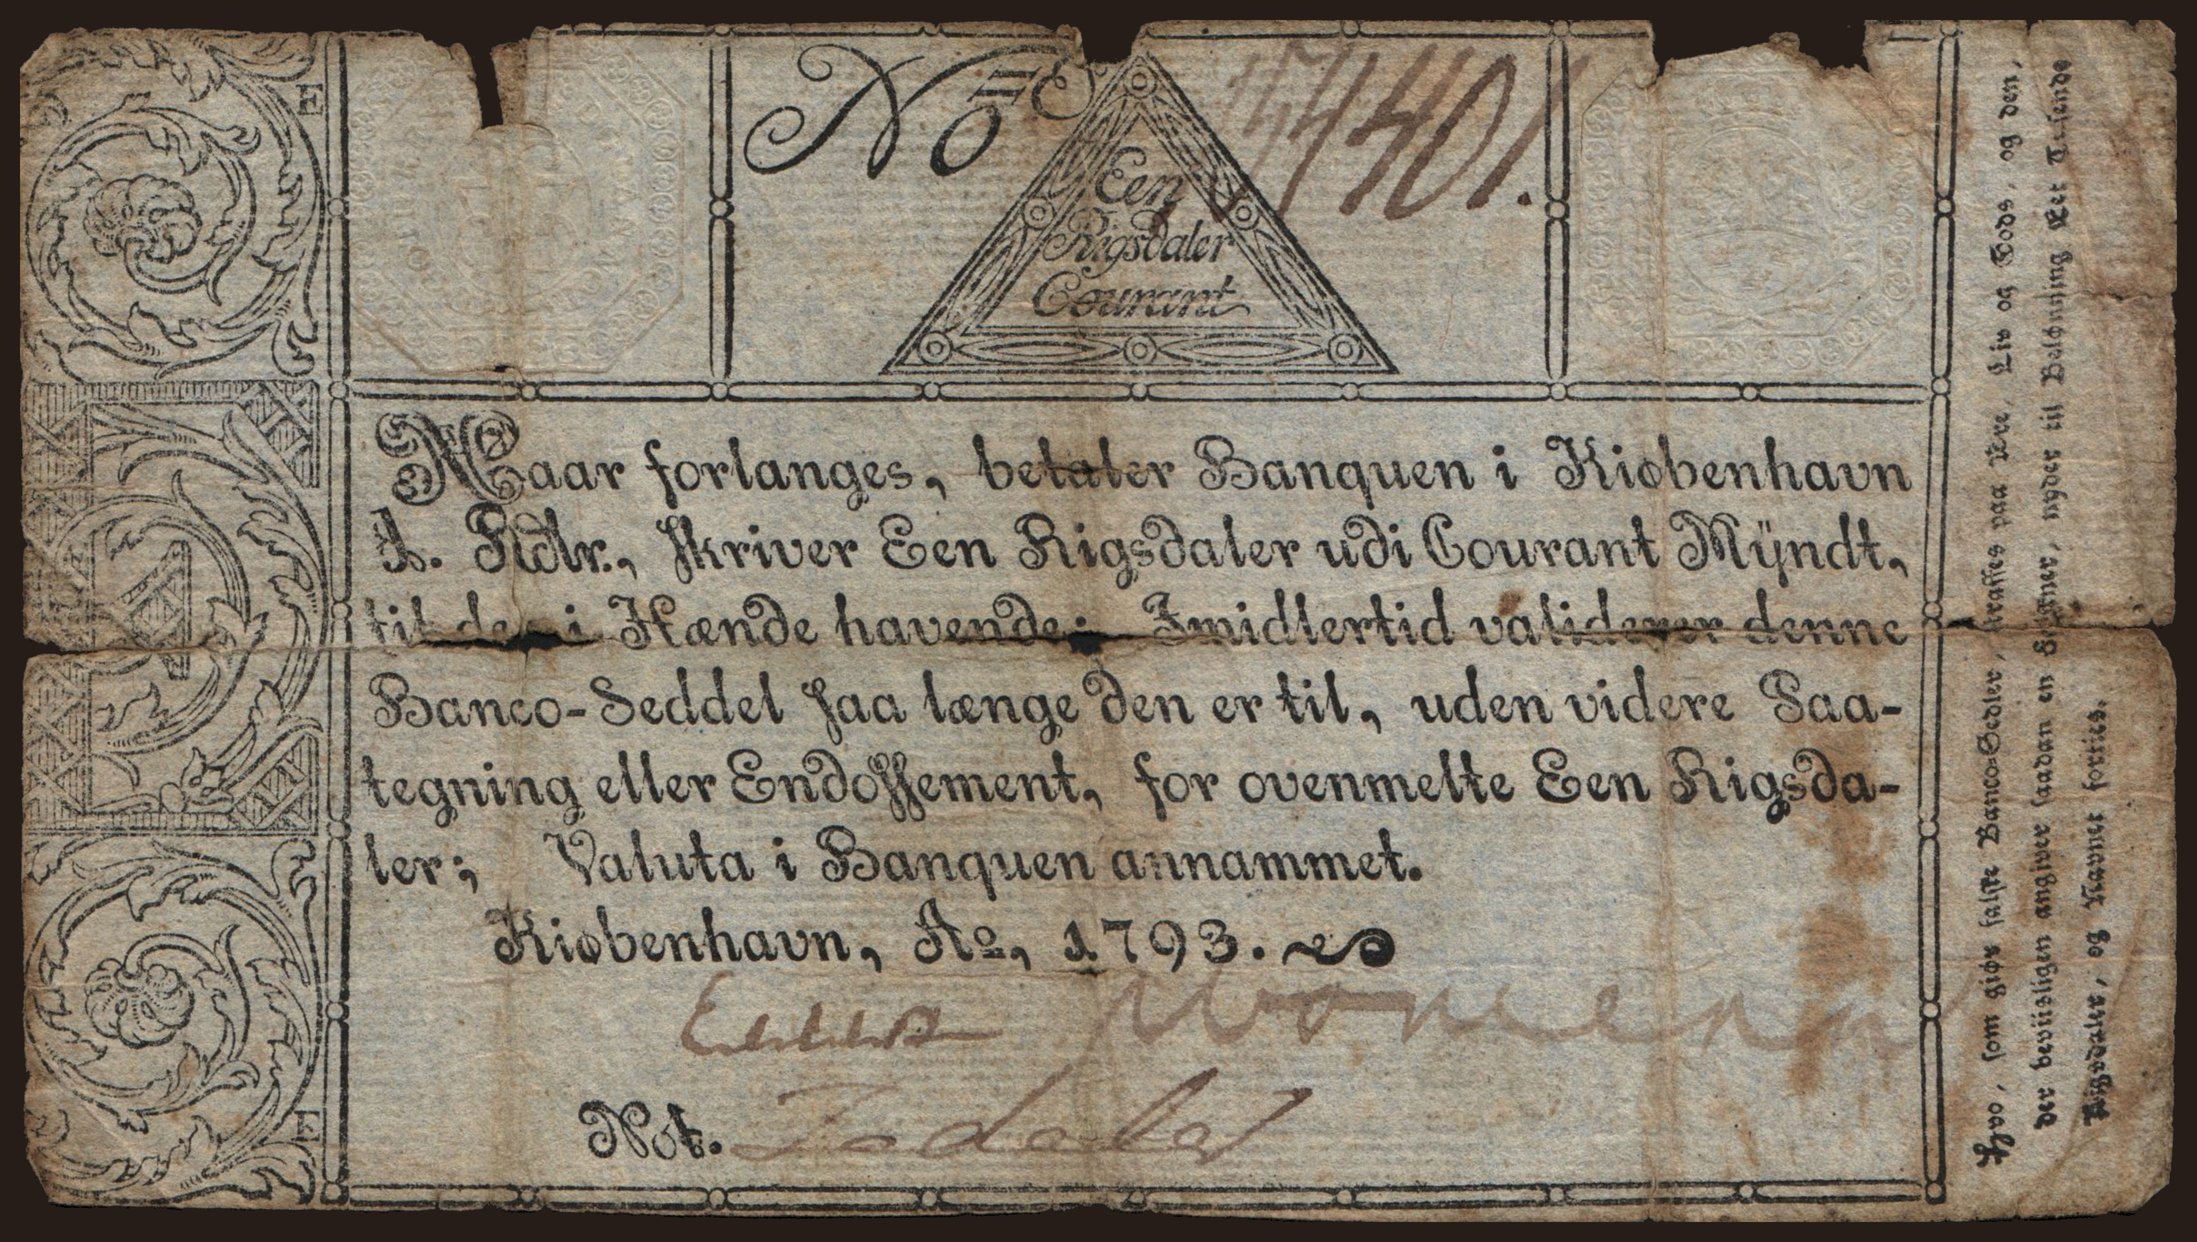 No
Een
Rigsdaler
Courant
Naar forlanges, betaler Banquen i Kiøbenhavn
1. Rdlr., skriver Een Rigsdaler udi Courant Mÿndt,
til den i Hænde havende; Imidlertid validerer denne
Banco-Seddel saa længe den er til, uden videre Paa-
tegning eller Endossement, for ovenmelte Een Rigsda-
ler; Valuta i Banquen annammet.
Kiøbenhavn, Ao, 1793.
Not.
Hvo, som giør falske Banco-Sedler, straffes paa Ære, Liv og Gods, og den,
der beviisligen angiver saadan en Giørner, nyder til Belønning Eet Tusende
Rigsdaler, og Navnet forties.